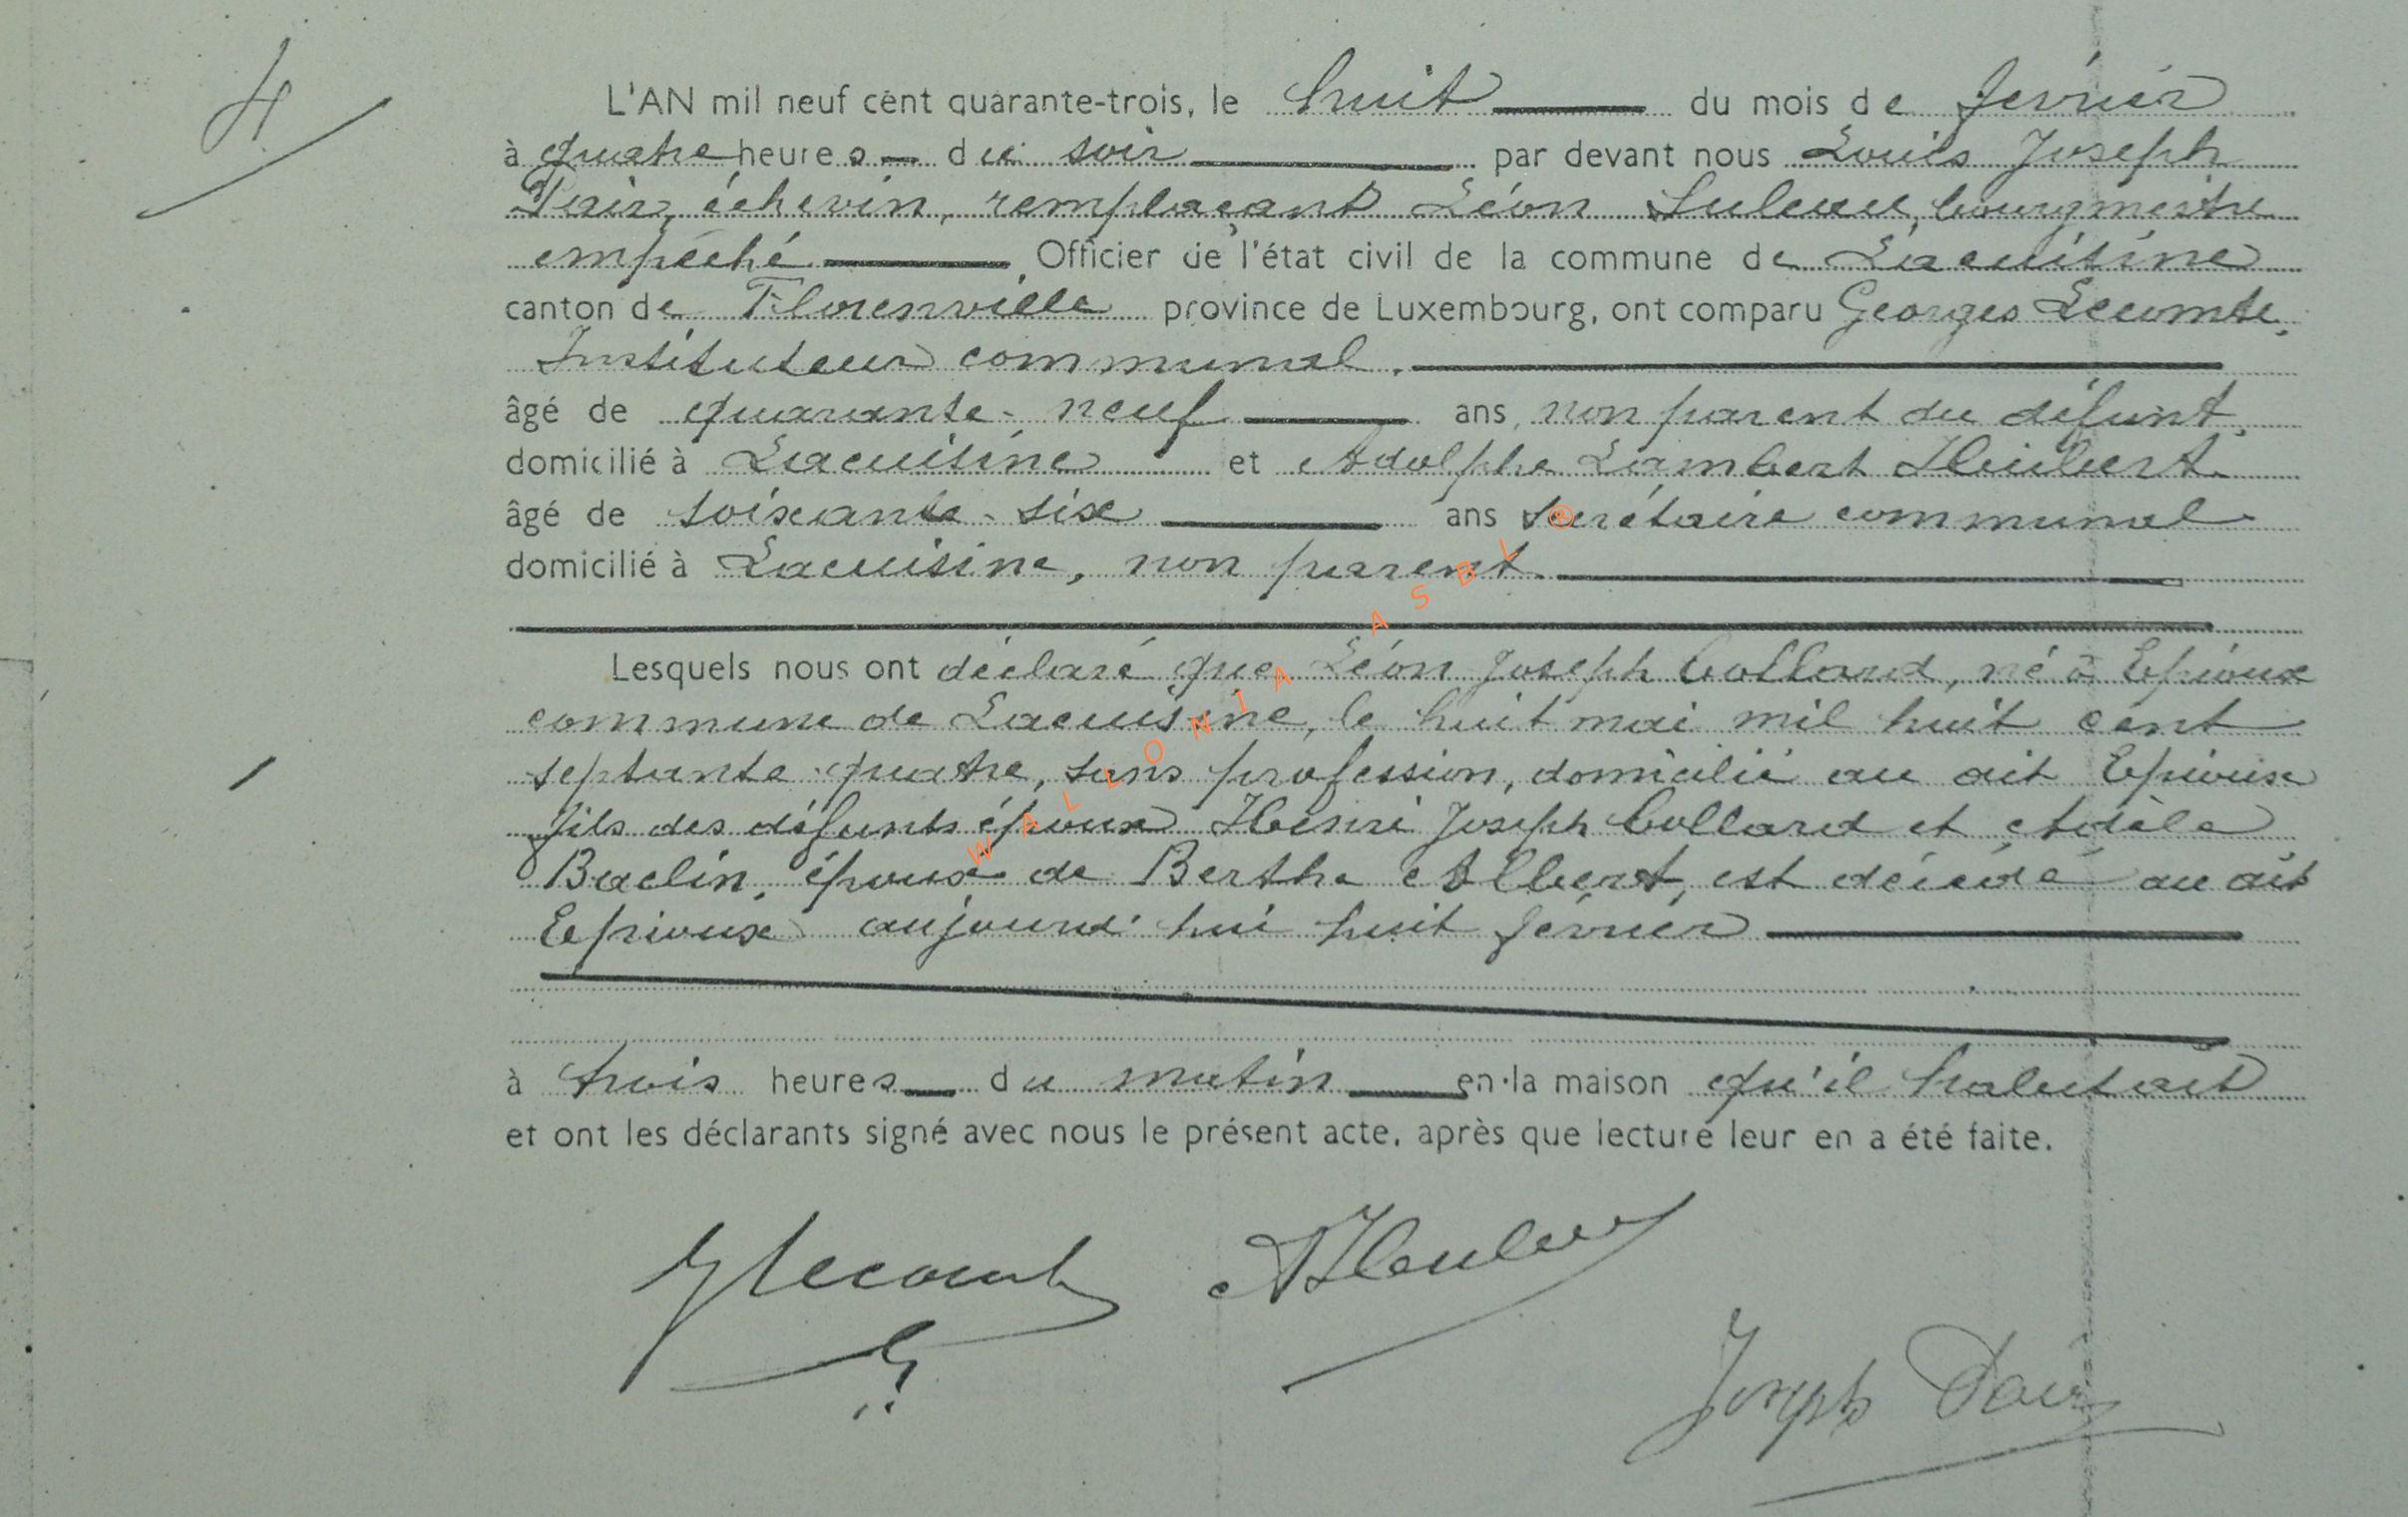 4
L'AN mil neuf cent quarante-trois, le huit du mois de février
à quatre heures du soir par devant nous Louis Joseph
échevin, remplaçant Léon bourgmestre
empêché, Officier de l'état civil de la commune de Lacuisine
canton de Florenville province de Luxembourg, ont comparu Georges Lecomte,
Instituteur communal.
âgé de quarante-neuf ans, non parent du défunt,
domicilié à Lacuisine et Adolphe Lambert
âgé de soixante-six ans secrétaire communal
domicilié à Lacuisine, non parent.
Lesquels nous ont déclaré que Léon Joseph Collard, né à Epioux
commune de Lacuisine, le huit mai mil huit cent
septante-quatre, sans profession, domicilié au dit Epioux
fils des défunts époux Henri Joseph Collard et Adèle
Baclin, époux de Berthe Albert, est décédé au dit
Epioux aujourd'hui huit février
à trois heures du matin en la maison qu'il habitait
et ont les déclarants signé avec nous le présent acte, après que lecture leur en a été faite.
GLecomte
Joseph
WALLONIA ASBL ®